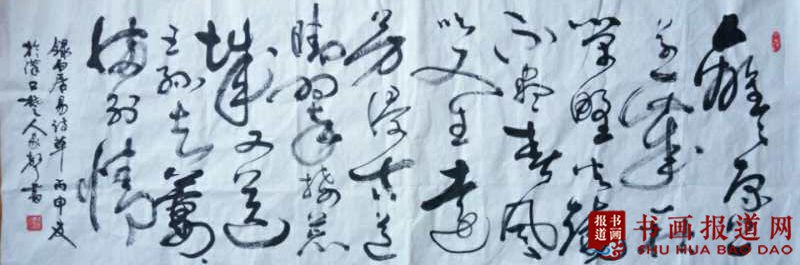 離々原上
草一歲一枯
榮野火燒
不盡春風
吹又生遠
芳侵古道
晴翠接荒
城又送
王孫去萋々
滿別情
録白居易詩草 丙申夏
於漢口楚人書
书画
报道
书画报道网
SHU HUA BAO DAO